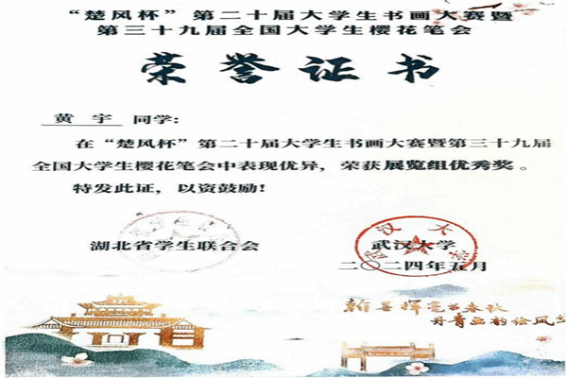 “楚风杯”第二十届大学生书画大赛暨
第三十九届全国大学生樱花笔会
荣誉证书
黄宇 同学：
在“楚风杯”第二十届大学生书画大赛暨第三十九届
全国大学生樱花笔会中表现优异，荣获展览组优秀奖。
特发此证，以资鼓励！
湖北省学生联合会
武汉大学
二〇二四年五月